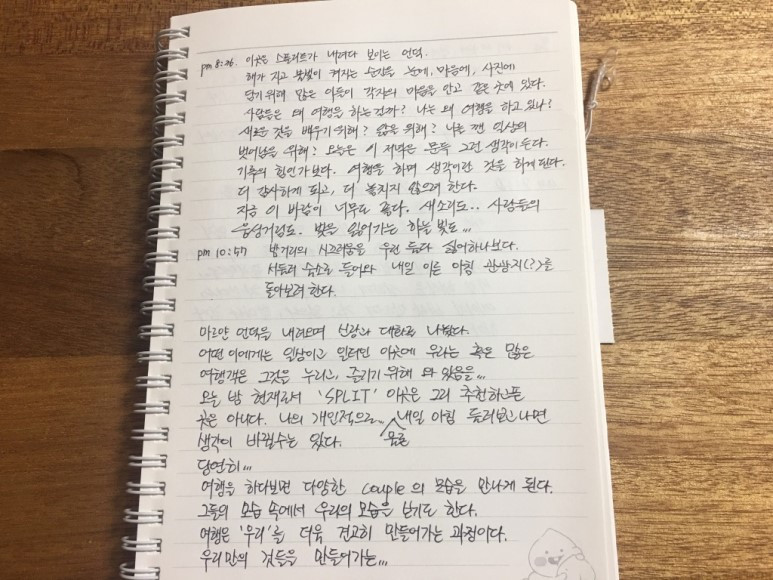 pm 8:26. 이곳은 스플리트가 내려다 보이는 언덕.
해가 지고 불빛이 켜지는 순간을 눈에, 마음에, 사진에
담기위해 많은 이들이 각자의 마음을 안고 같은 곳에 있다.
사람들은 왜 여행을 하는걸까? 나는 왜 여행을 하고 있나?
새로운 것을 배우기 위해? 쉼을 위해? 나는 깬 일상의
벗어남을 위해? 오늘은 이 저녁은 문득 그런 생각이 든다.
기록의 힘인가보다. 여행을 하며 생각이란 것을 하게 된다.
더 감사하게 되고, 더 놓치지 않으려 한다.
지금 이 바람이 너무도 좋다. 새소리도.. 사람들의
웅성거림도. 빛을 잃어가는 하늘 빛도...
pm 10:57 밤거리의 시끄러움을 우린 둘다 싫어하나보다.
서둘러 숙소로 들어와 내일 이른 아침 관광지(?)를
돌아보려 한다.
마르얀 언덕을 내려오며 신랑과 대화로 나눴다.
어떤 이에게는 일상이고 일터인 이곳에 우리는 혹은 많은
여행객은 그것을 누리고, 즐기기 위해 와 있음을...
오늘 밤 현재로서 'SPLIT' 이곳은 그리 추천하고픈
곳은 아니다. 나의 개인적으로.. 내일 아침 둘러보고나면
생각이 바뀔수는 있다. 물론
당연히...
여행을 하다보면 다양한 couple의 모습을 만나게 된다.
그들의 모습 속에서 우리의 모습을 보기도 한다.
여행은 '우리'를 더욱 견고히 만들어가는 과정이다.
우리만의 것들을 만들어가는...